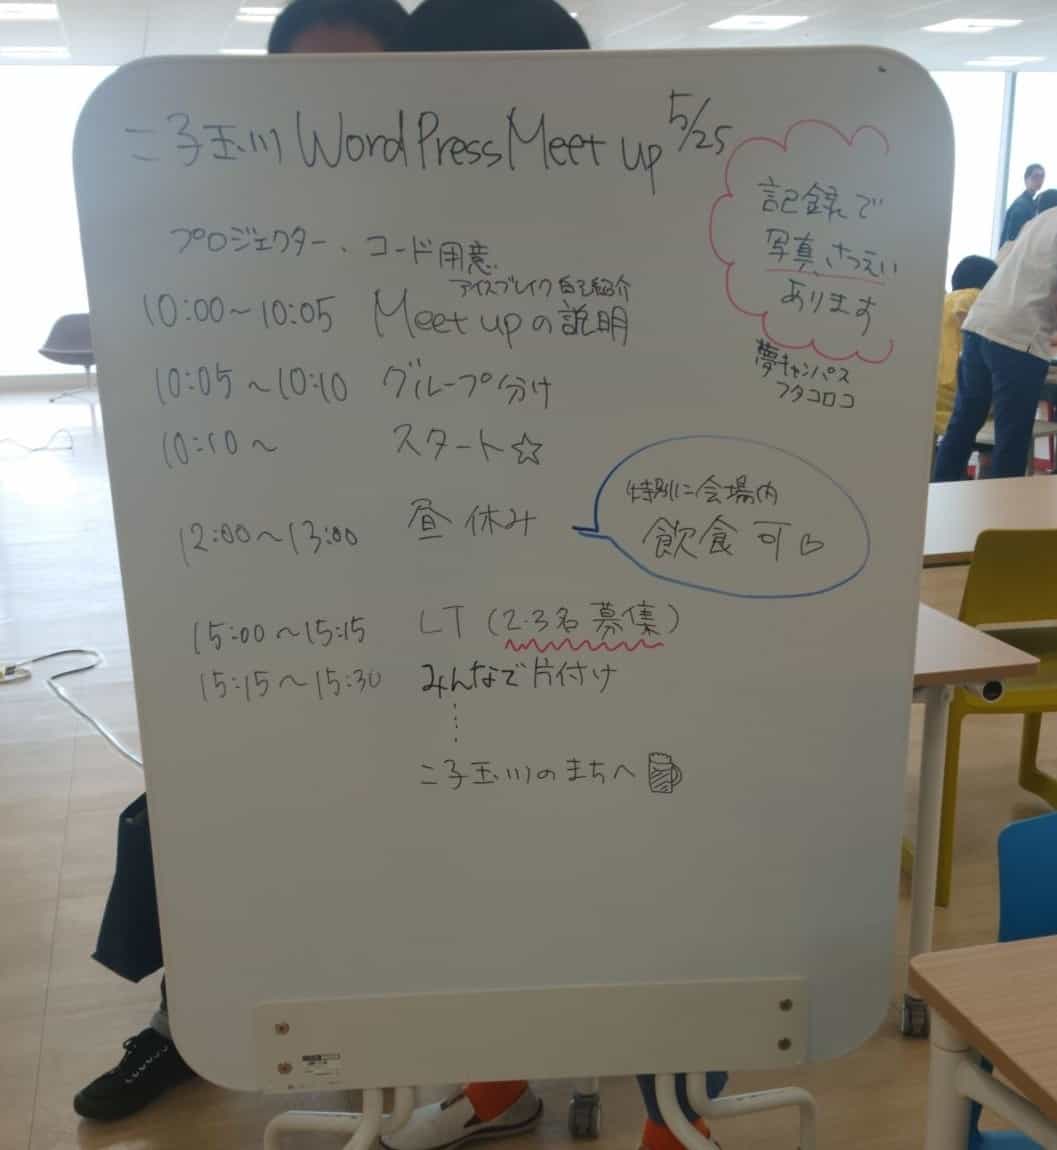 二子玉川 WordPress Meet up 5/25
記録で
写真さつえい
あります
夢キャンパス
フタコロコ
プロジェクター、コード用意
アイスブレイク 自己紹介
10:00～10:05 Meet upの説明
10:05～10:10 グループ分け
10:10～ スタート☆
12:00～13:00 昼休み
特別に会場内
飲食可♡
15:00～15:15 LT (2・3名募集)
15:15～15:30 みんなで片付け
二子玉川のまちへ